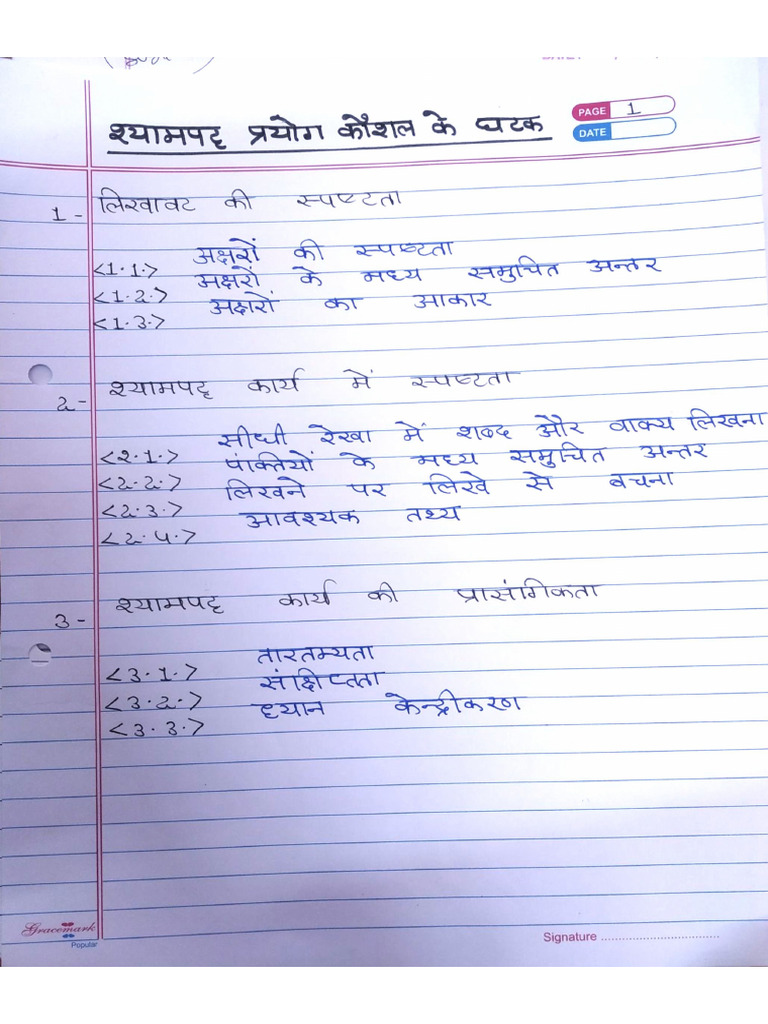 PAGE 1
DATE
श्यामपट्ट प्रयोग कौशल के घटक
1- लिखावट की स्पष्टता
<1.1.> अक्षरों की स्पष्टता
<1.2.> अक्षरों के मध्य समुचित अन्तर
<1.3.> अक्षरों का आकार
2- श्यामपट्ट कार्य में स्पष्टता
<2.1.> सीधी रेखा में शब्द और वाक्य लिखना
<2.2.> पंक्तियों के मध्य समुचित अन्तर
<2.3.> लिखने पर लिखे से बचना
<2.4.> आवश्यक तथ्य
3- श्यामपट्ट कार्य की प्रासंगिकता
<3.1.> तारतम्यता
<3.2.> संक्षिप्तता
<3.3.> ध्यान केन्द्रीकरण
Gracemark
Popular
Signature ..................................